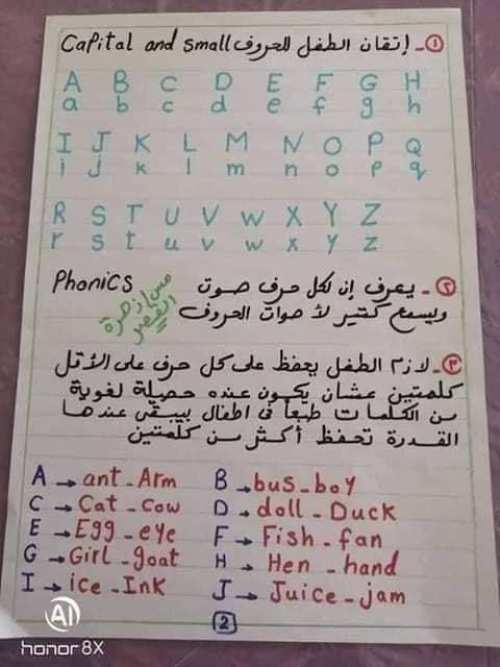 ①- إتقان الطفل للحروف Capital and small
A B C D E F G H
a b c d e f g h
I J K L M N O P Q
i j k l m n o p q
R S T U V W X Y Z
r s t u v w x y z
②- يعرف إن لكل حرف صوت Phonics
ويسمع كتير لأصوات الحروف
مس/زهرة
القصر
③- لازم الطفل يحفظ على كل حرف على الأقل
كلمتين عشان يكون عنده حصيلة لغوية
من الكلمات طبعاً في اطفال بيبقى عندها
القدرة تحفظ أكثر من كلمتين
A → ant - Arm B → bus - boy
C → Cat - Cow D → doll - Duck
E → Egg - eye F → Fish - fan
G → Girl - goat H → Hen - hand
I → ice - Ink J → Juice - jam
2
AI
honor 8X